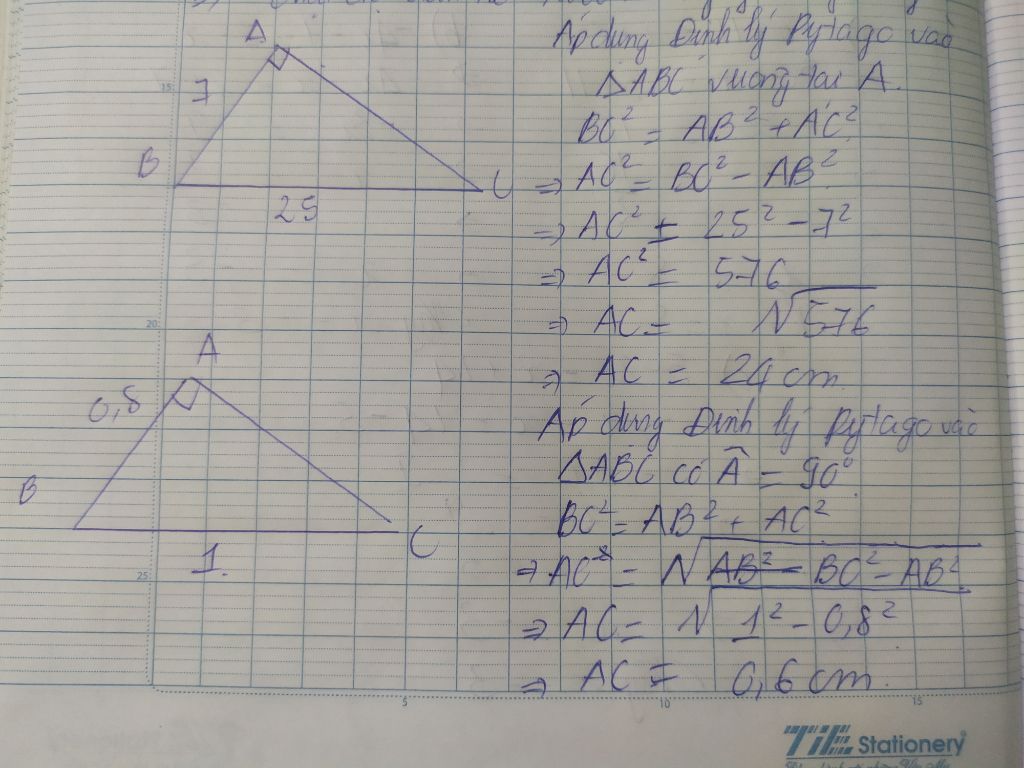 A
7
B
C
25
Áp dụng Định lý Pytago vào
△ABC vuông tại A.
BC² = AB² + AC²
⇒ AC² = BC² - AB²
⇒ AC² = 25² - 7²
⇒ AC² = 576
⇒ AC = √576
⇒ AC = 24 cm
A
0,8
B
C
1
Áp dụng Định lý Pytago vào
△ABC có Â = 90°
BC² = AB² + AC²
⇒ AC = √BC² - AB²
⇒ AC = √1² - 0,8²
⇒ AC = 0,6 cm
15
20
25
5
10
15
TiE Stationery